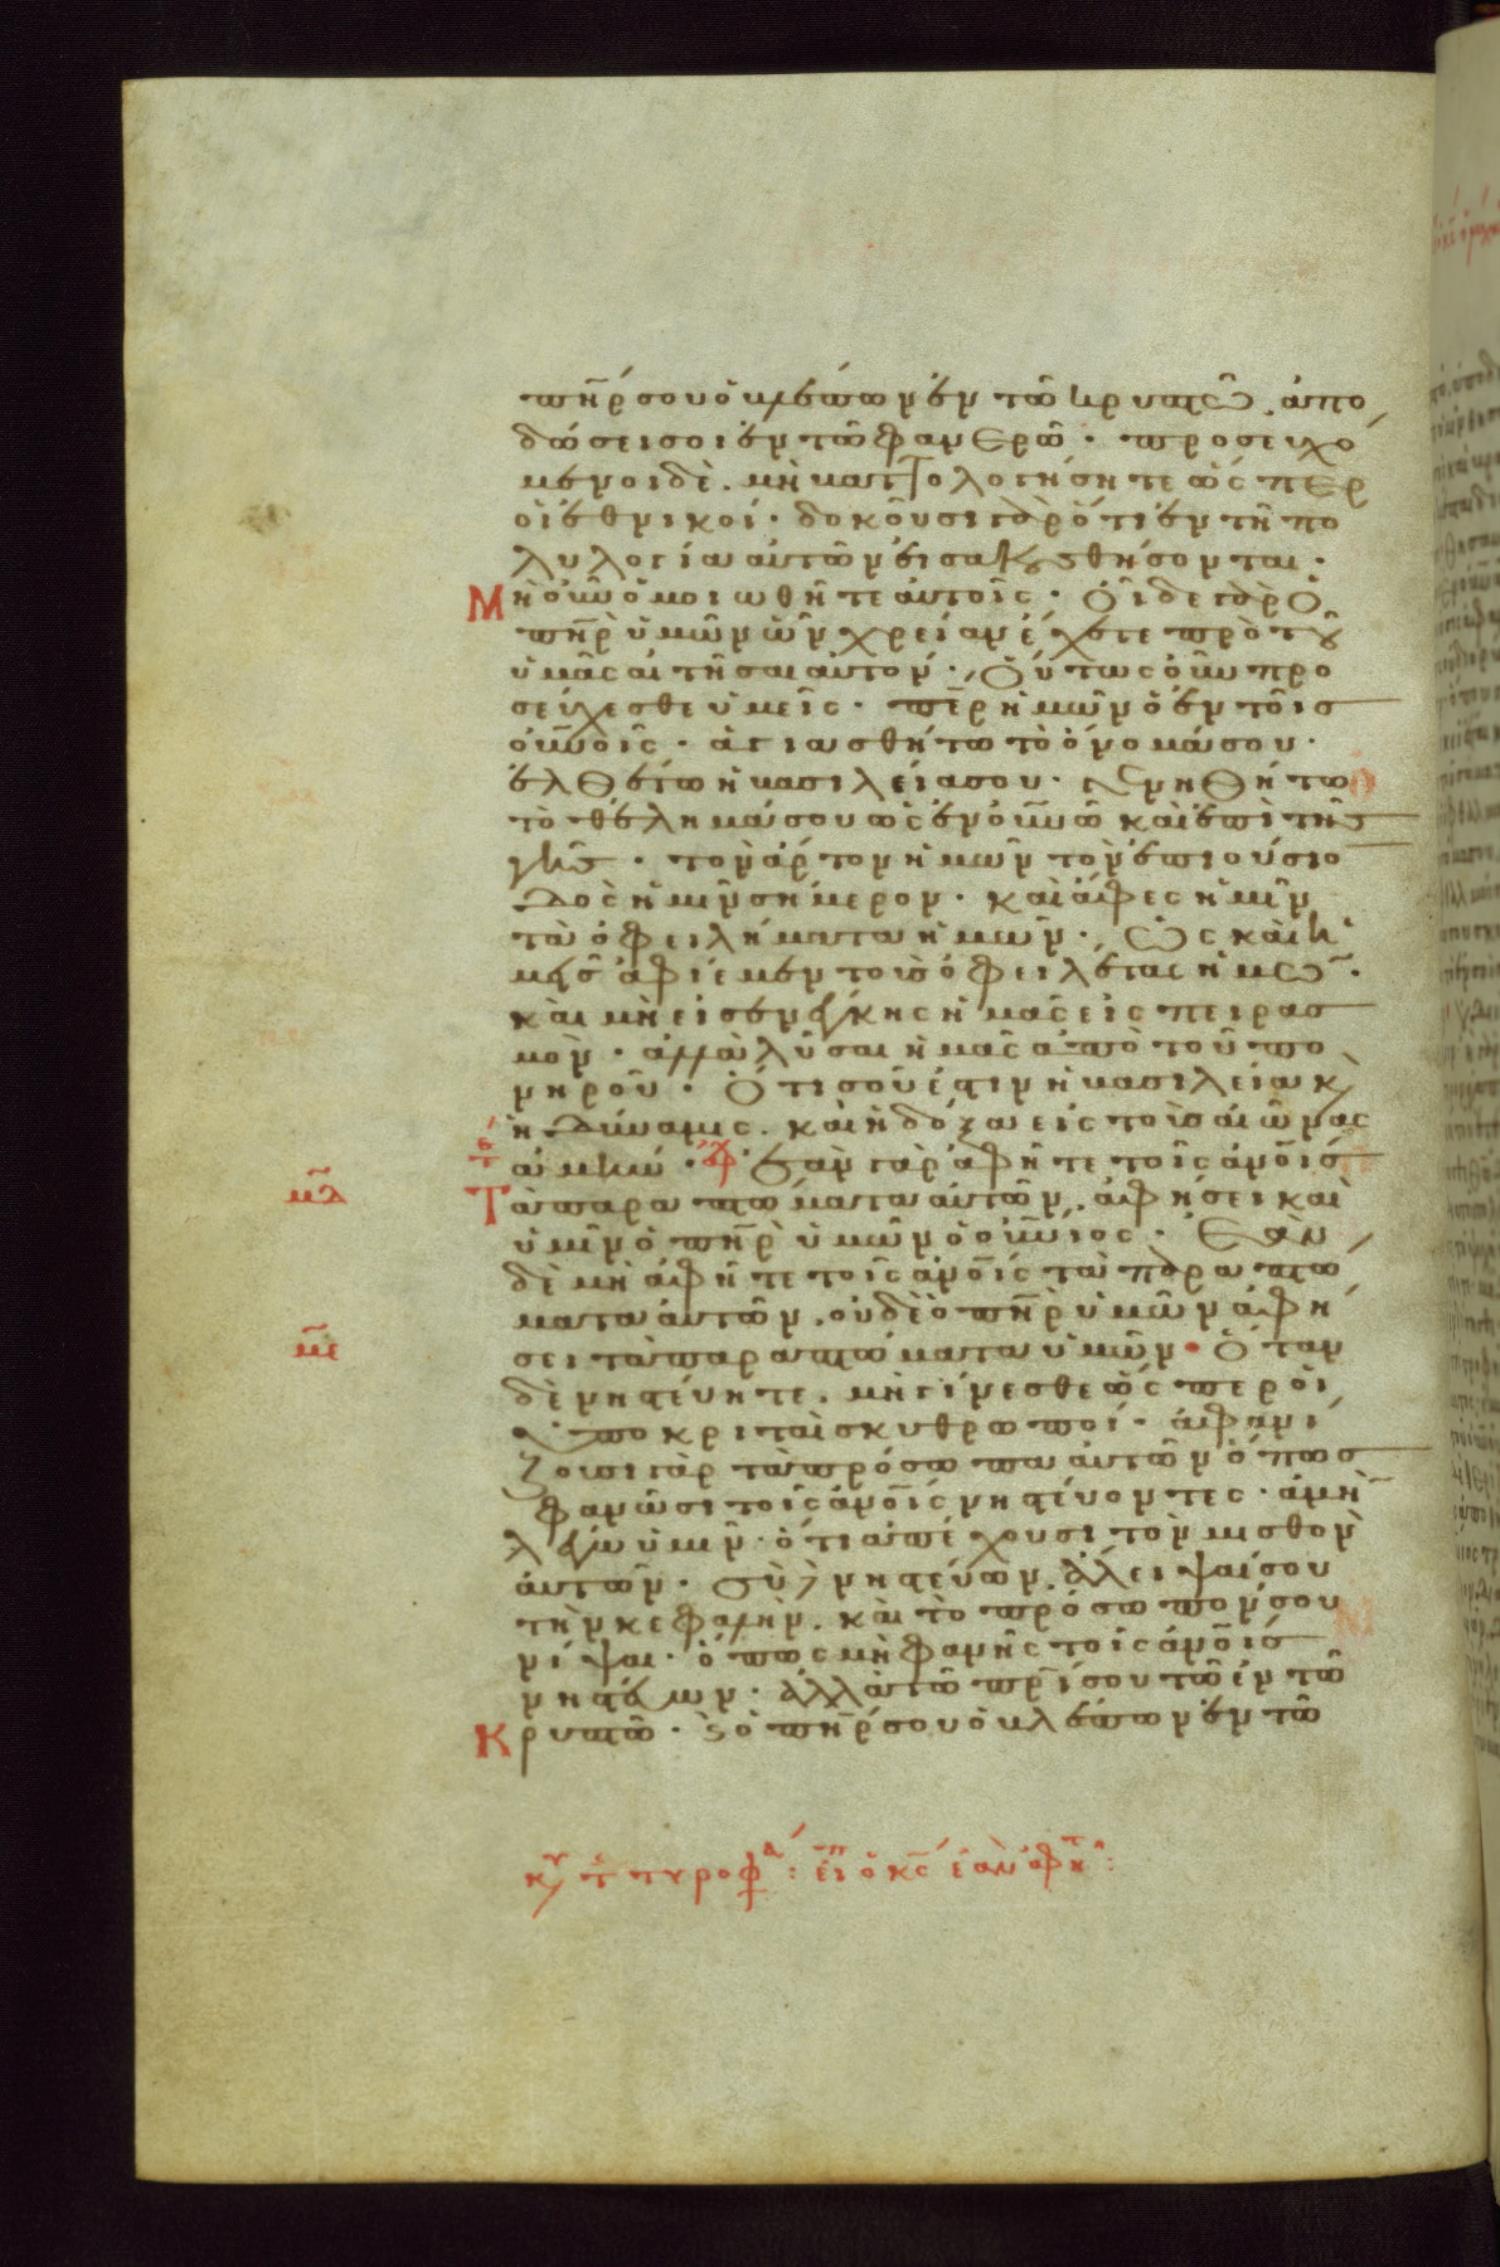 πη̅ρ σου ὁ βλέπων ἐν τῶ κρυπτῶ. ἀπο
δώσει σοι ἐν τῶ φανερῶ · προσευχό
μενοι δὲ. μὴ βαττολογήσητε ὥσπερ
οἱ ἐθνικοί · δοκοῦσι γὰρ ὅτι ἐν τῆ πο
λυλογία αὐτῶν εἰσακουσθήσονται ·
Μὴ οὖν ὁμοιωθῆτε αὐτοῖς · Οἶδε γὰρ ὁ
πη̅ρ ὑμῶν ὧν χρείαν ἔχετε πρὸ τοῦ
ὑμᾶς αἰτῆσαι αὐτόν · Οὕτως οὖν προ
σεύχεσθε ὑμεῖς · πε̅ρ ἡμῶν ὁ ἐν τοῖς
οὐ̅νοῖς · ἁγιασθήτω τὸ ὄνομά σου ·
ἐλθέτω ἡ βασιλεία σου · γενηθήτω
τὸ θέλημά σου ὡς ἐν οὐ̅νῶ καὶ ἐπὶ τῆς
γῆς · τὸν ἄρτον ἡμῶν τὸν ἐπιούσιο
δὸς ἡμῖν σήμερον · καὶ ἄφες ἡμῖν
τὰ ὀφειλήματα ἡμῶν · Ὡς καὶ ἡ
μεῖς ἀφίεμεν τοῖς ὀφειλέταις ἡμῶ̅ ·
καὶ μὴ εἰσενέγκης ἡμᾶς εἰς πειρασ
μὸν · ἀλλὰ ῥῦσαι ἡμᾶς ἀπὸ τοῦ πο
νηροῦ · Ὅτι σοῦ ἐστιν ἡ βασιλεία κ̀
ἡ δύναμις. καὶ ἡ δόξα εἰς τοὺς αἰῶνας
ἀμήν · Ἐὰν γὰρ ἀφῆτε τοῖς ἀν̅οις
Τὰ παραπτώματα αὐτῶν. ἀφήσει καὶ
μδ̅
ὑμῖν ὁ πη̅ρ ὑμῶν ὁ οὐ̅νιος · Ἐὰν
δὲ μὴ ἀφῆτε τοῖς ἀν̅οις τὰ παραπτώ
ματα αὐτῶν. οὐδὲ ὁ πη̅ρ ὑμῶν ἀφή
σει τὰ παραπτώματα ὑμῶν · Ὅταν
με̅
δὲ νηστεύητε. μὴ γίνεσθε ὥσπερ οἱ
ὑποκριταὶ σκυθρωποί · ἀφανί
ζουσι γὰρ τὰ πρόσωπα αὐτῶν ὅπως
φανῶσι τοῖς ἀν̅οις νηστεύοντες · ἀμὴ̅
λέγω ὑμῖν · ὅτι ἀπέχουσι τὸν μισθὸν
αὐτῶν · σὺ δὲ νηστεύων. ἄλειψαί σου
τὴν κεφαλὴν. καὶ τὸ πρόσωπόν σου
νίψαι · ὅπως μὴ φανῆς τοῖς ἀν̅οις
νηστεύων · ἀλλὰ τῶ πρ̅ί σου τῶ ἐν τῶ
Κρυπτῶ · κ̀ ὁ πη̅ρ σου ὁ βλέπων ἐν τῶ
κυ τ τυροφα : εἶπ ὁ κς̅ ἐὰν ἀφητ :